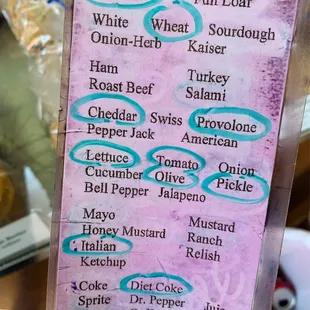 White Wheat Sourdough
Onion-Herb Kaiser
Ham Turkey
Roast Beef Salami
Cheddar Swiss Provolone
Pepper Jack American
Lettuce Tomato Onion
Cucumber Olive Pickle
Bell Pepper Jalapeno
Mayo Mustard
Honey Mustard Ranch
Italian Relish
Ketchup
Coke Diet Coke
Sprite Dr. Pepper